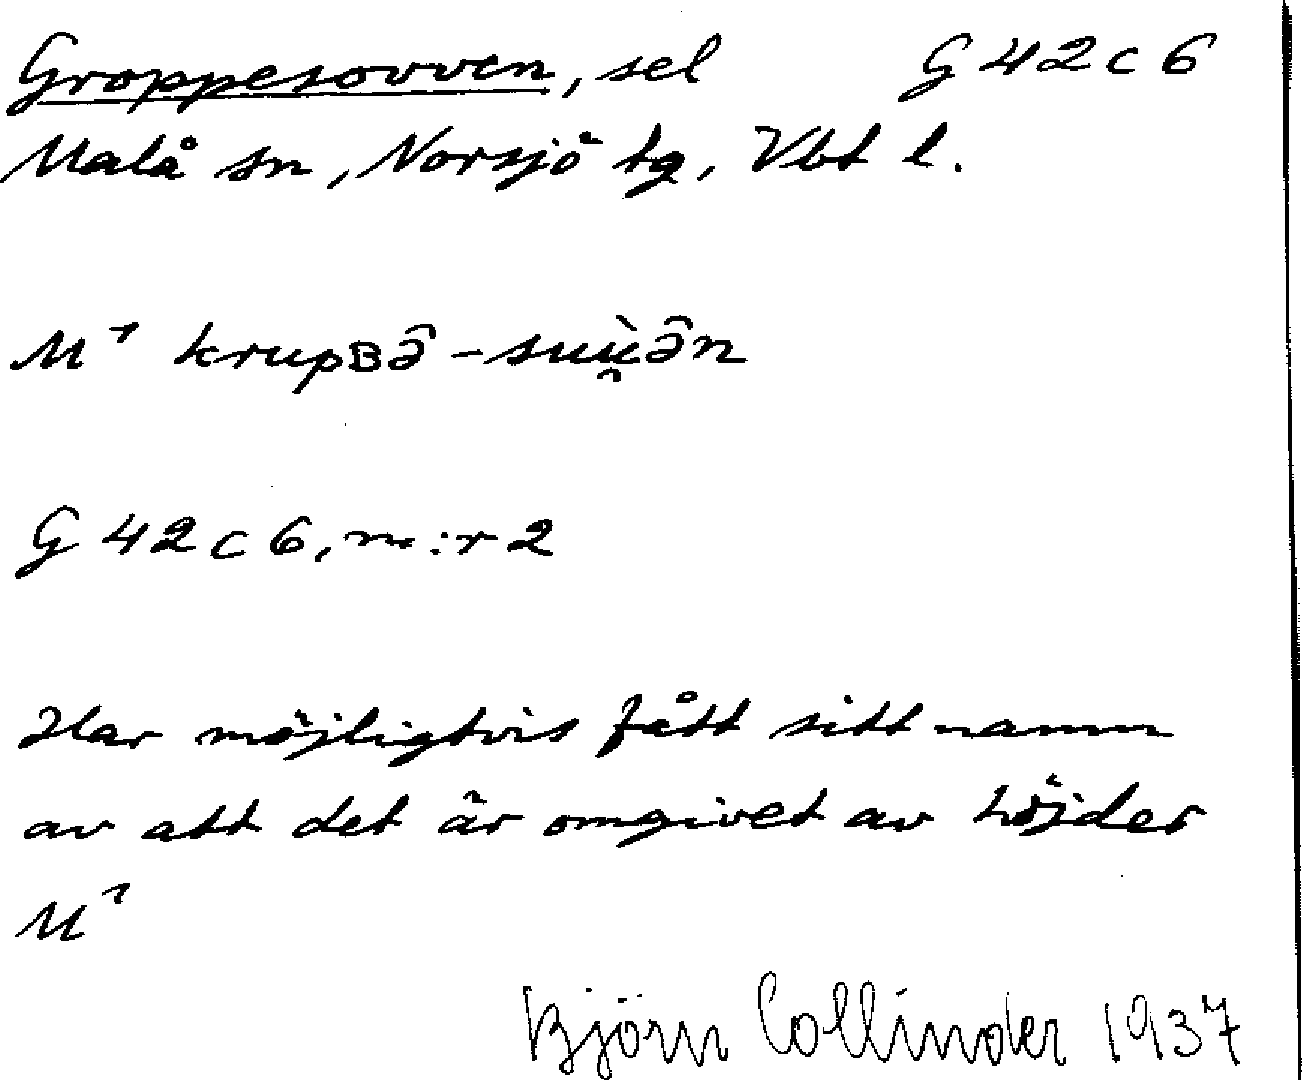 Groppesovven, sel G 42 c 6
Malå sn, Norsjö tg, Vbt l.
M¹ krupʙə̑ - suù̯ə̑n
G 42 c 6, n:r 2
Har möjligtvis fått sitt namn
av att det är omgivet av höjder
M¹
Björn Collinder 1937